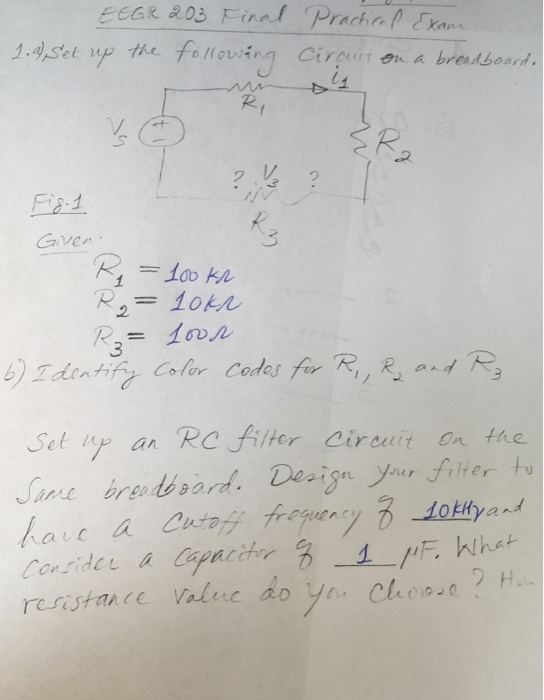 EEGR 203 Final Practical Exam
1.a) Set up the following Circuit on a breadboard.
i1
R1
Vs
+
-
R2
? V3 ?
R3
Fig.1
Given:
R1 = 100 kΩ
R2 = 10kΩ
R3 = 100Ω
b) Identify Color Codes for R1, R2 and R3
Set up an RC filter circuit on the
Same breadboard. Design your filter to
have a cutoff frequency of 10kHz and
Consider a capacitor of 1 μF. What
resistance value do you choose?